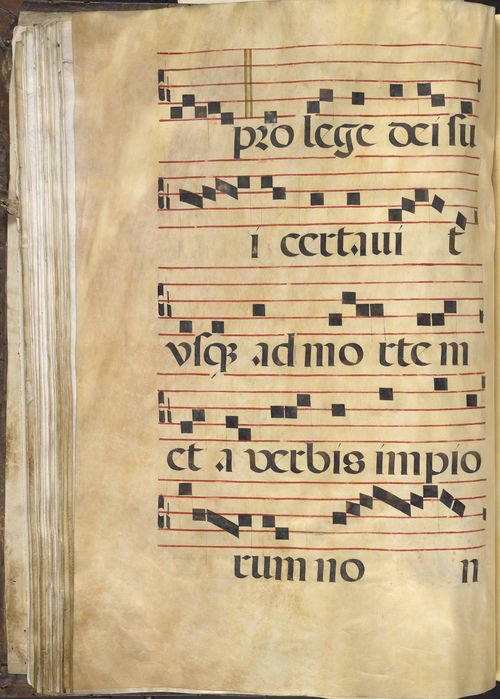 pro lege dei su
i certaui t
vsqꝫ ad mo rte m
et a verbis impio
rum no n